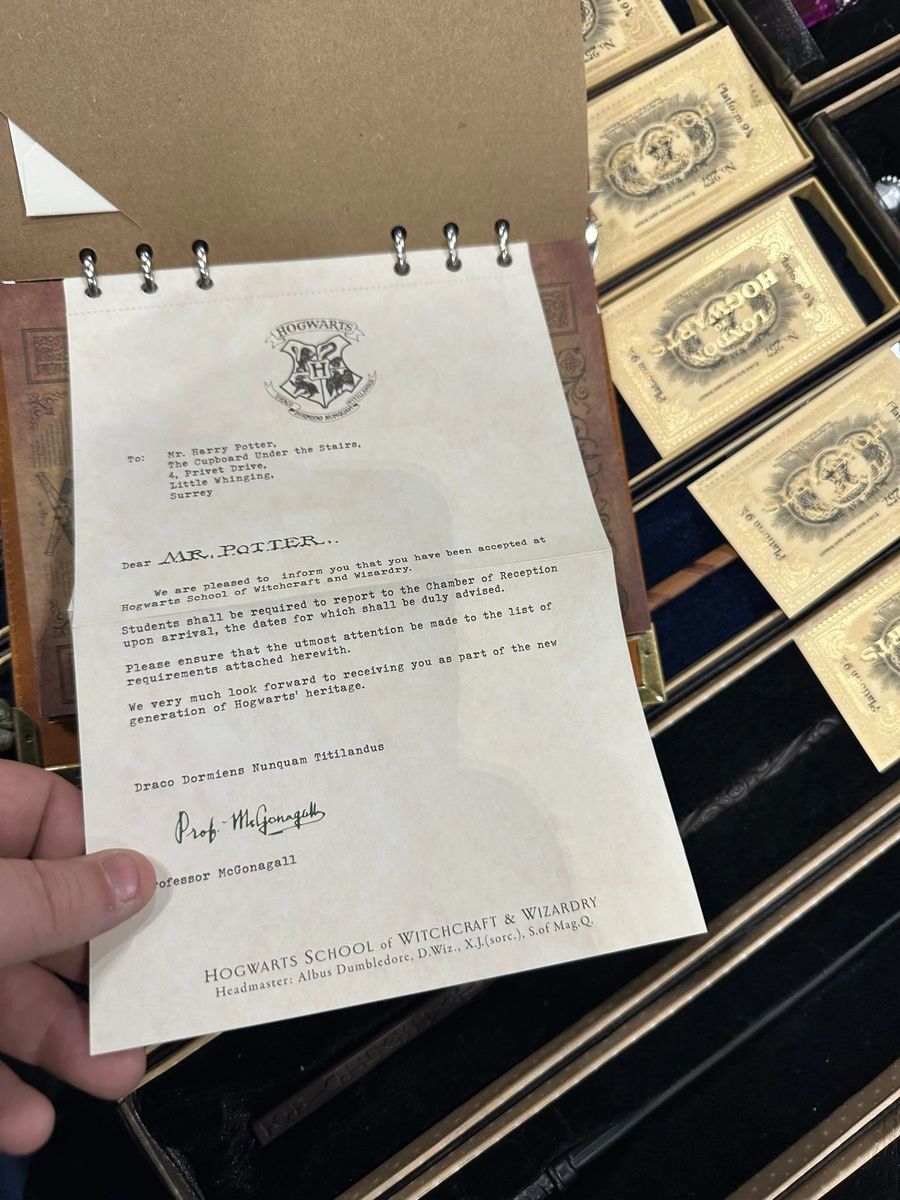 HOGWARTS
H
DRACO DORMIENS NUNQUAM TITILANDUS
To: Mr. Harry Potter,
The Cupboard Under the Stairs,
4, Privet Drive,
Little Whinging,
Surrey
Dear MR. POTTER..
We are pleased to inform you that you have been accepted at
Hogwarts School of Witchcraft and Wizardry.
Students shall be required to report to the Chamber of Reception
upon arrival, the dates for which shall be duly advised.
Please ensure that the utmost attention be made to the list of
requirements attached herewith.
We very much look forward to receiving you as part of the new
generation of Hogwarts' heritage.
Draco Dormiens Nunquam Titilandus
Prof. McGonagall
rofessor McGonagall
HOGWARTS SCHOOL of WITCHCRAFT & WIZARDRY
Headmaster: Albus Dumbledore, D.Wiz., X.J.(sorc.), S.of Mag.Q.
9¾
No.
Platform 9¾
No. 257
LONDON
to
HOGWARTS
Platform 9¾
No. 257
Platform 9¾
Platform 9¾